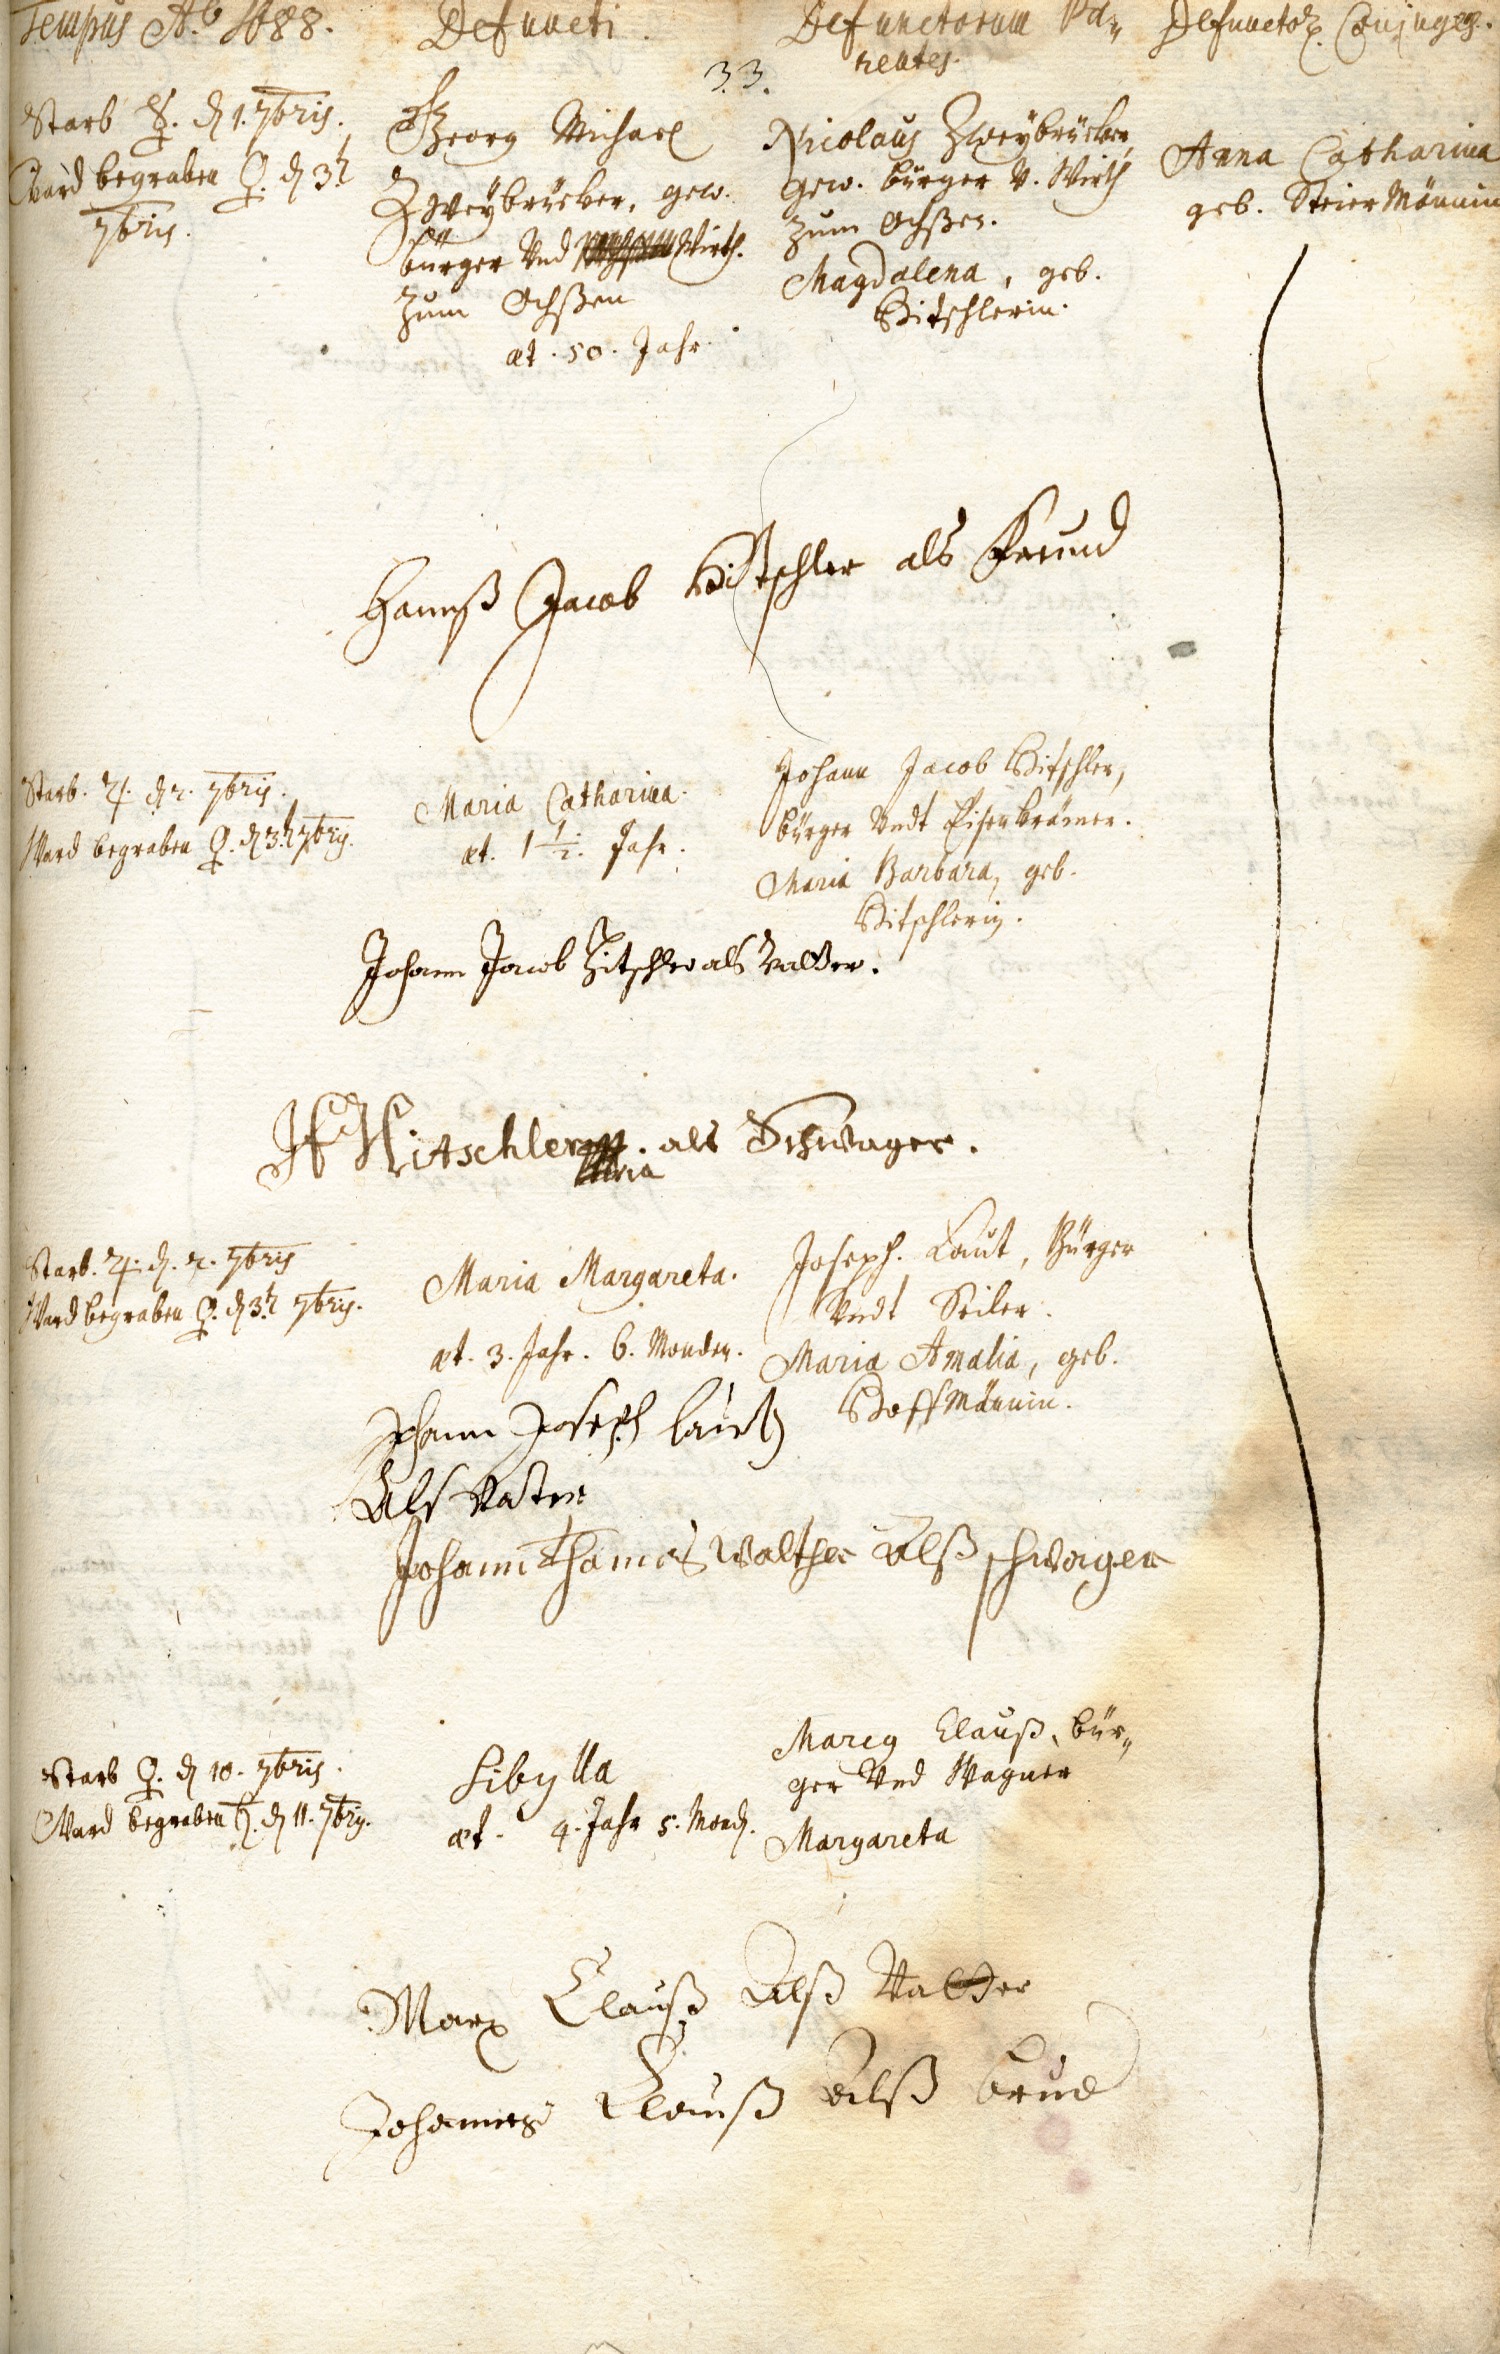 Tempus Ao 1688.
Defuncti.
Defunctorum Pa-
rentes.
Defunctor. Conjuges.
33.
Starb ☿. d 1. 7bris.
Ward begraben ♀. d 3t
7bris.
H. Georg Michael
Zweybrücker, gew.
bürger Vnd Wirth.
zum Ochßen
æt. 50. Jahr.
Nicolaus Zweybrücker,
gew. bürger V. Wirth
zum Ochßen.
Magdalena, geb.
Hitschlerin.
Anna Catharina
geb. SteierMännin
Hannß Jacob Hitschler als Freund
Starb. ♃. d 2. 7bris.
Ward begraben ♀. d 3.t 7bris.
Maria Catharina.
æt. 1 1/2. Jahr.
Johann Jacob Hitschler,
bürger Vndt Eisenkrämer.
Maria Barbara, geb.
Hitschlerin.
Johann Jacob Hitschler als Vatter.
JF Hitschler als Schwager.
Starb. ♃. d. 2. 7bris
Ward begraben ♀. d 3.t 7bris.
Maria Margareta.
æt. 3. Jahr. 6. Monden.
Joseph. Laut, Bürger
Vndt Seiler.
Maria Amalia, geb.
HoffMännin.
Johann Joseph Laut
Als Vatter
Johann Thomas Walther Alß schwager
Starb ♀. d 10. 7bris.
Ward begraben ♄. d 11. 7bris.
Sibylla
æt. 4. Jahr 5. Mond.
Marcy Clauß, bür-
ger Vnd Wagner
Margareta
Marx Clauß Alß Vatter
Johannes Clauß Alß brud